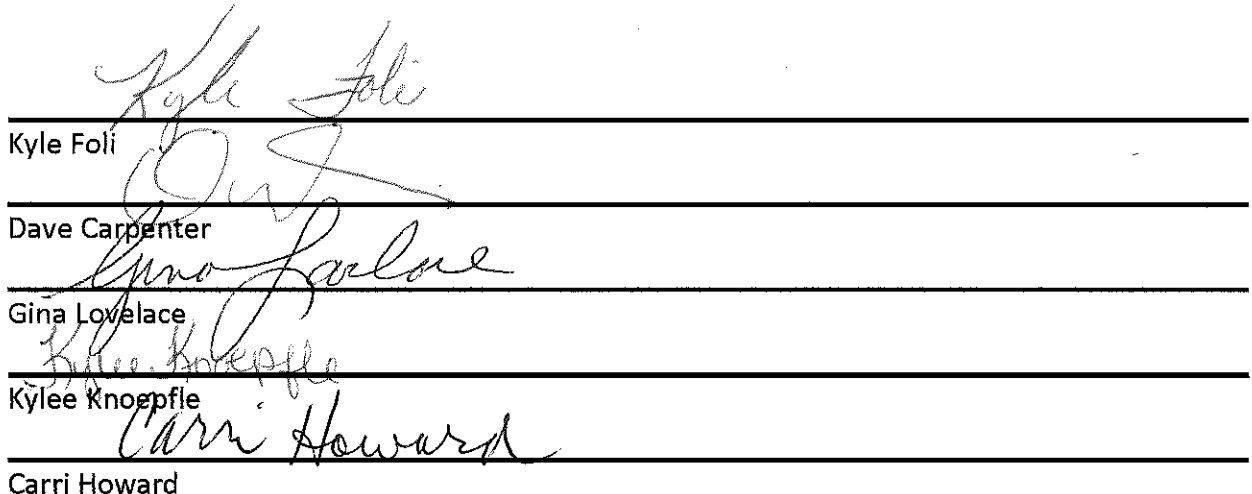 Kyle Foli
Kyle Foli
Dave Carpenter
Gina Lovelace
Gina Lovelace
Kylee Knoepfle
Kylee Knoepfle
Carri Howard
Carri Howard